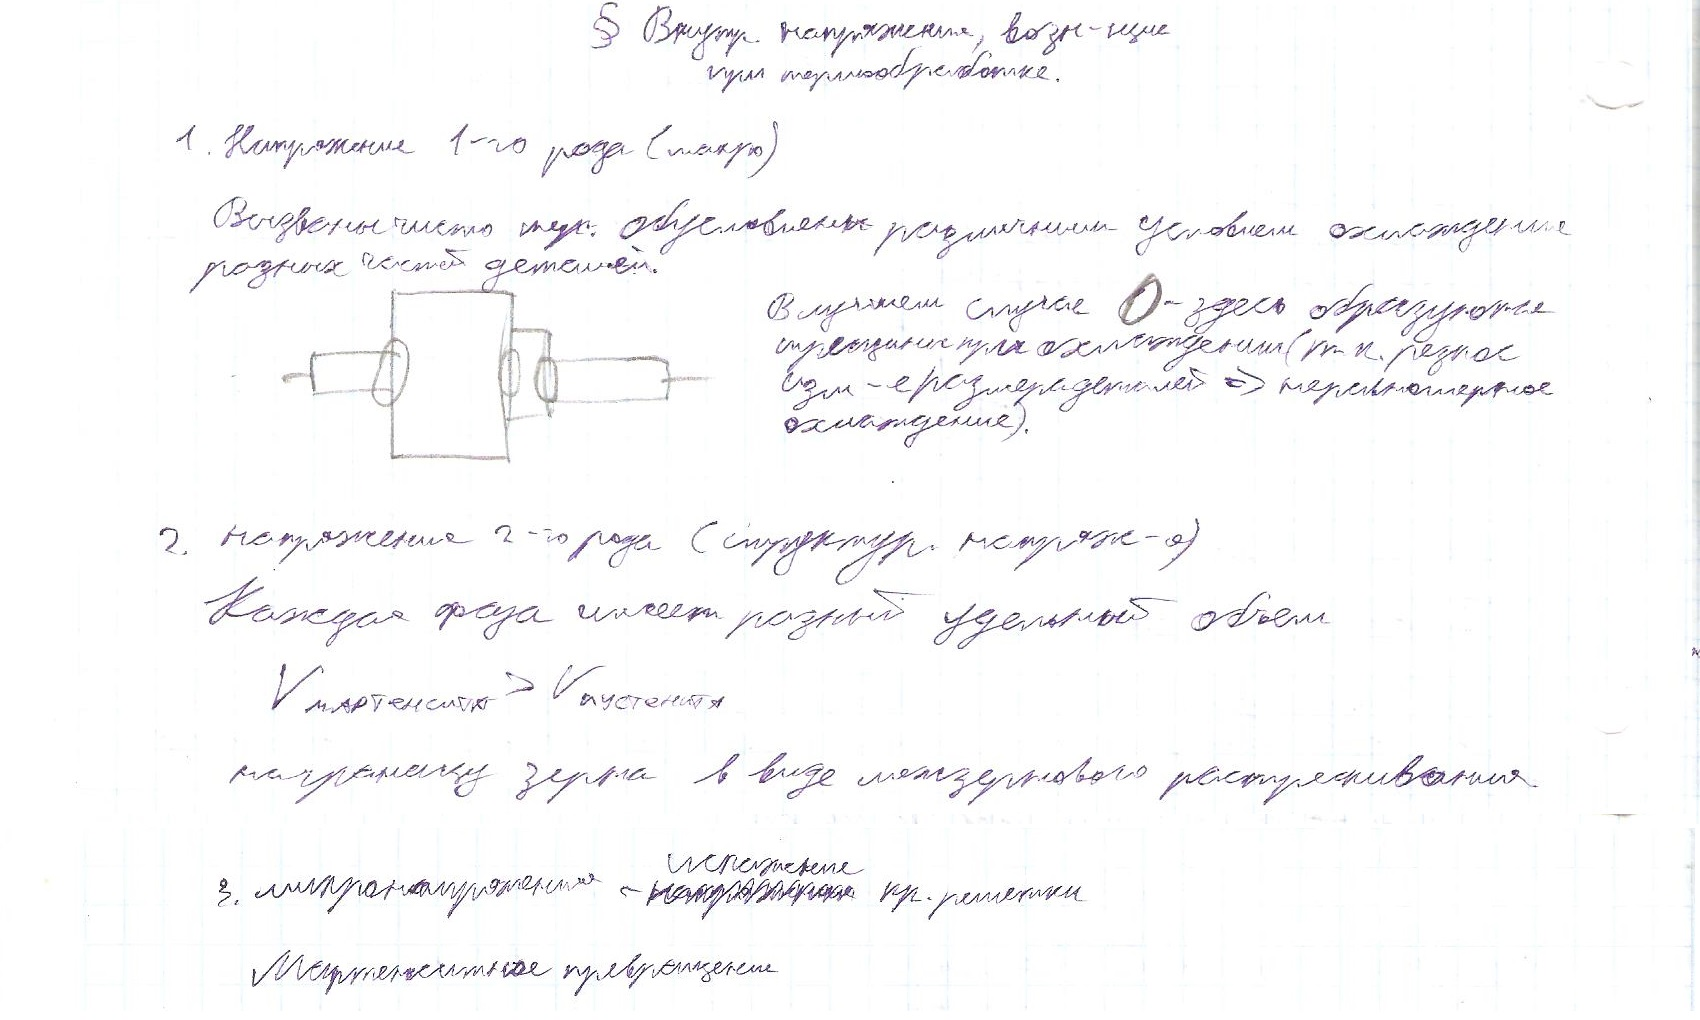 § Внутр. напряжения, возн-щие
при термообработке.
1. Напряжение 1-го рода (макро)
Вызваны чисто тер. обусловлены различными условием охлаждение
разных частей деталей.
В лучшем случае O - здесь образуются
трещины при охлаждении (т.к. резкое
изм-е размера деталей => неравномерное
охлаждение).
2. напряжение 2-го рода (структур. напряж-я)
Каждая фаза имеет разный удельный объем
V мартенсита > V аустенита
на границу зерна в виде межзернового растрескивания
искажение
3. микронапряжения - кр. решетки
Мартенситное превращение